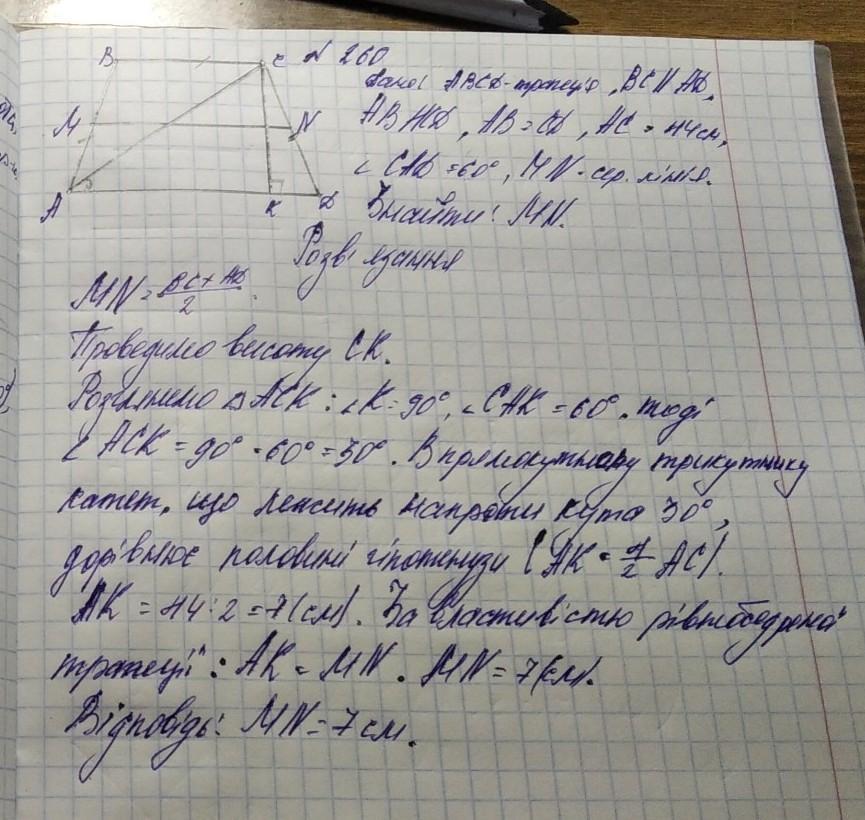 B C N 260
Дано: ABCD-трапеція, BC || AD,
M N AB ∦ CD, AB = CD, AC = 14 см,
∠ CAD = 60°, MN - сер. лінія.
A K D Знайти: MN.
Розв'язання
MN = (BC + AD)/2.
Проведемо висоту CK.
Розглянемо △ ACK: ∠K = 90°, ∠CAK = 60°. тоді
∠ ACK = 90° - 60° = 30°. В прямокутному трикутнику
катет, що лежить напроти кута 30°,
дорівнює половині гіпотенузи (AK = 1/2 AC).
AK = 14 : 2 = 7 (см). За властивістю рівнобедреної
трапеції: AK = MN. MN = 7 (см).
Відповідь: MN = 7 см.